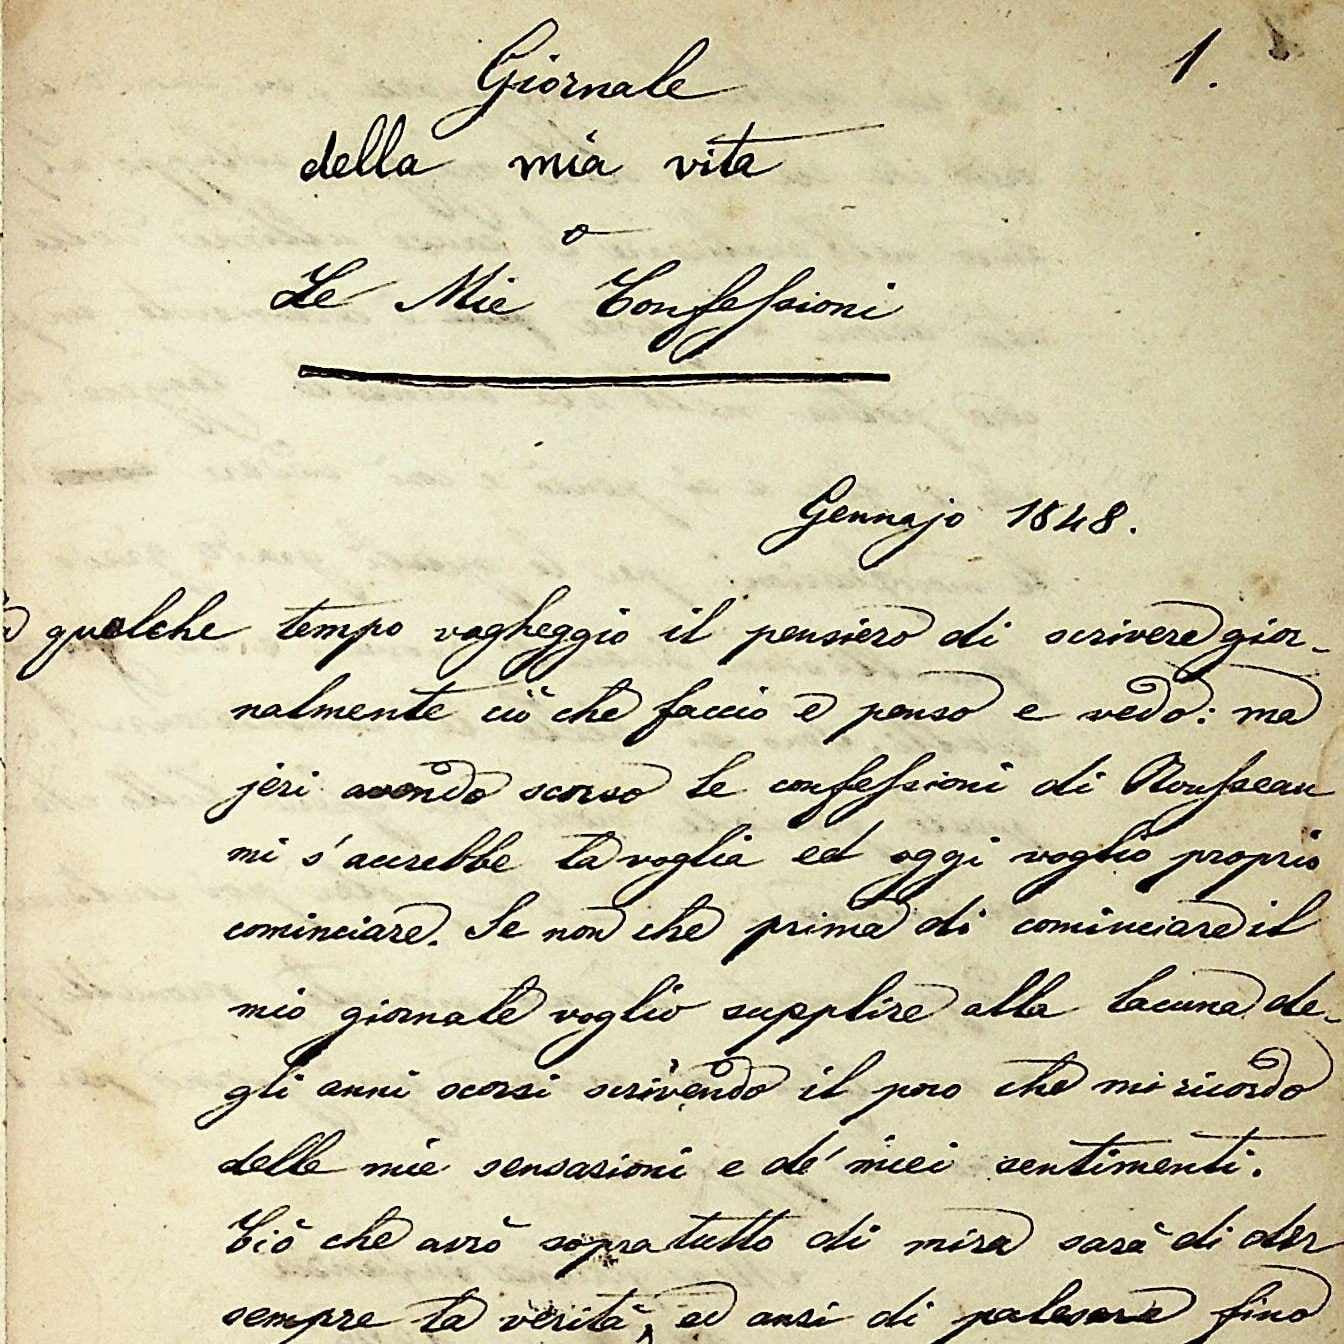 1.
Giornale
della mia vita
o
Le Mie Confessioni
Gennajo 1848.
qualche tempo vagheggio il pensiero di scrivere gior-
nalmente ciò che faccio e penso e vedo: ma
jeri avendo scorso le confessioni di Rousseau
mi s'accrebbe la voglia ed oggi voglio proprio
cominciare. Se non che prima di cominciare il
mio giornale voglio supplire alla lacuna de-
gli anni scorsi scrivendo il poco che mi ricordo
delle mie sensazioni e de' miei sentimenti.
Ciò che avrò sopra tutto di mira sarà di dir
sempre la verità, ed anzi di palesare fino